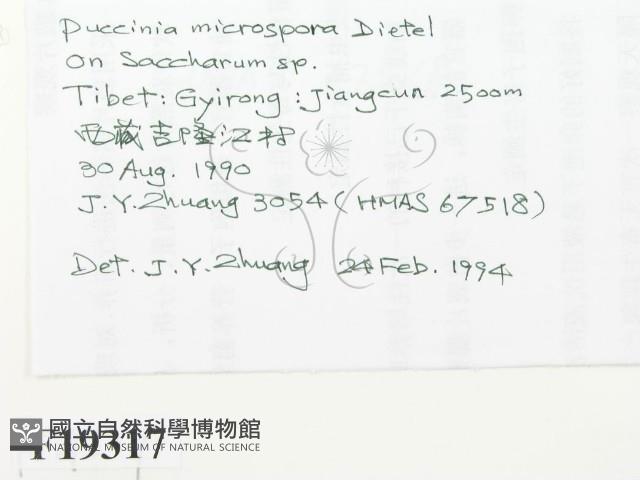 Puccinia microspora Dietel
on Saccharum sp.
Tibet: Gyirong: Jiangcun 2500m
西藏吉隆江村
30 Aug. 1990
J.Y.Zhuang 3054 (HMAS 67518)
Det. J.Y.Zhuang 24 Feb. 1994
國立自然科學博物館
NATIONAL MUSEUM OF NATURAL SCIENCE
19317